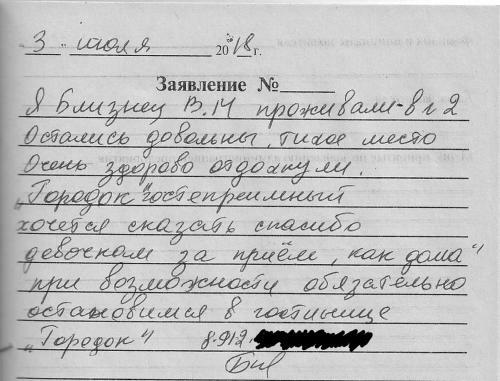 3 июля 2018 г.
Заявление №
Я Близнец В.М проживали-в к 2
Остались довольны, тихое место
Очень здорово отдохнули.
„Городок" гостеприимный
хочется сказать спасибо
девочкам за приём „как дома"
при возможности обязательно
остановимся в гостинице
„Городок" 8-912-